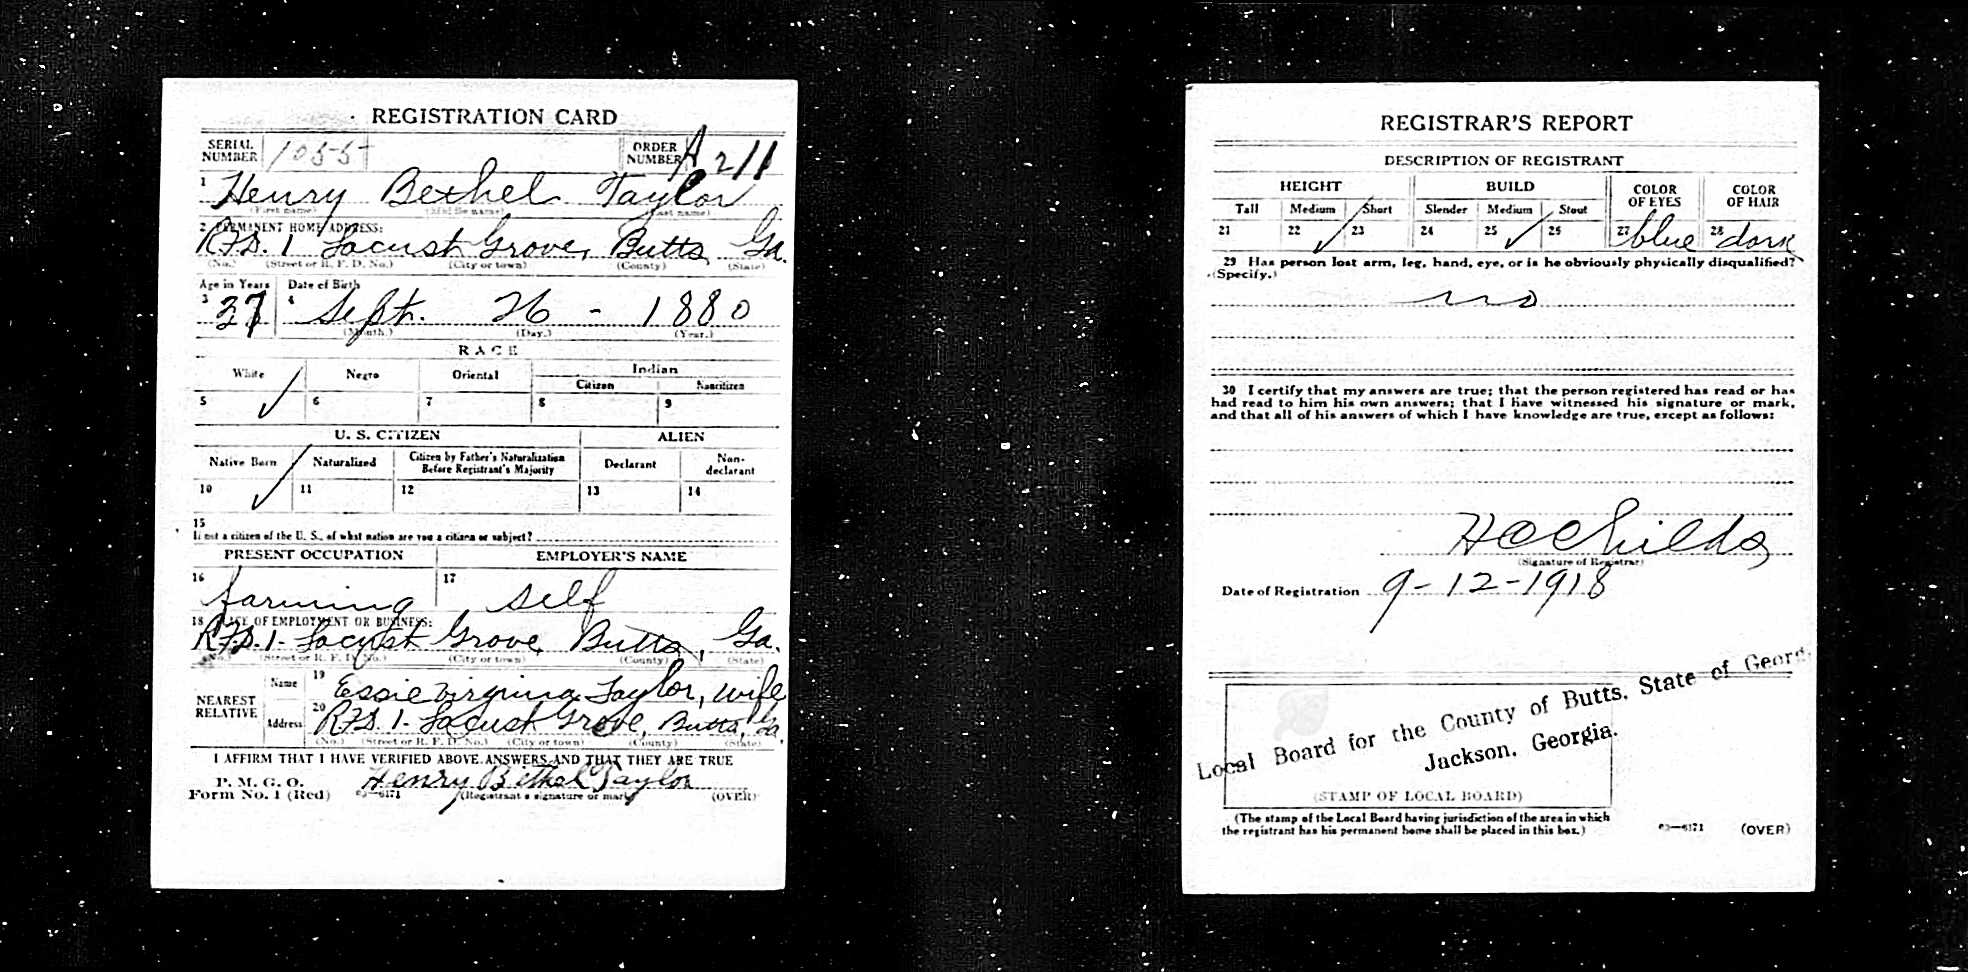 REGISTRATION CARD
SERIAL NUMBER 1055 ORDER NUMBER A 211
1 Henry Bethel Taylor
(First name) (Middle name) (Last name)
2 PERMANENT HOME ADDRESS:
R.F.D. 1 Locust Grove, Butts, Ga.
(No.) (Street or R. F. D. No.) (City or town) (County) (State)
Age in Years Date of Birth
3 37 4 Sept. 26 - 1880
(Month.) (Day.) (Year.)
RACE
White Negro Oriental Indian
Citizen Noncitizen
5 ✓ 6 7 8 9
U. S. CITIZEN ALIEN
Native Born Naturalized Citizen by Father's Naturalization Before Registrant's Majority Declarant Non-declarant
10 ✓ 11 12 13 14
15
If not a citizen of the U. S., of what nation are you a citizen or subject?
PRESENT OCCUPATION EMPLOYER'S NAME
16 farming 17 self
18 PLACE OF EMPLOYMENT OR BUSINESS:
R.F.D. 1 - Locust Grove, Butts, Ga.
(No.) (Street or R. F. D. No.) (City or town) (County) (State)
NEAREST RELATIVE Name 19 Essie Virginia Taylor, wife
Address 20 R.F.D. 1 - Locust Grove, Butts, Ga.
(No.) (Street or R. F. D. No.) (City or town) (County) (State)
I AFFIRM THAT I HAVE VERIFIED ABOVE ANSWERS AND THAT THEY ARE TRUE
P. M. G. O.
Form No. 1 (Red) 03—6171 Henry Bethel Taylor
(Registrant's signature or mark) (OVER)
REGISTRAR'S REPORT
DESCRIPTION OF REGISTRANT
HEIGHT BUILD COLOR OF EYES COLOR OF HAIR
Tall Medium Short Slender Medium Stout
21 22 ✓ 23 24 25 ✓ 26 27 blue 28 dark
29 Has person lost arm, leg, hand, eye, or is he obviously physically disqualified?
(Specify.)
no
30 I certify that my answers are true; that the person registered has read or has
had read to him his own answers; that I have witnessed his signature or mark,
and that all of his answers of which I have knowledge are true, except as follows:
H C Childs
(Signature of Registrar)
Date of Registration 9-12-1918
Local Board for the County of Butts, State of Georg
Jackson, Georgia.
(STAMP OF LOCAL BOARD)
(The stamp of the Local Board having jurisdiction of the area in which
the registrant has his permanent home shall be placed in this box.)
03—6171 (OVER)